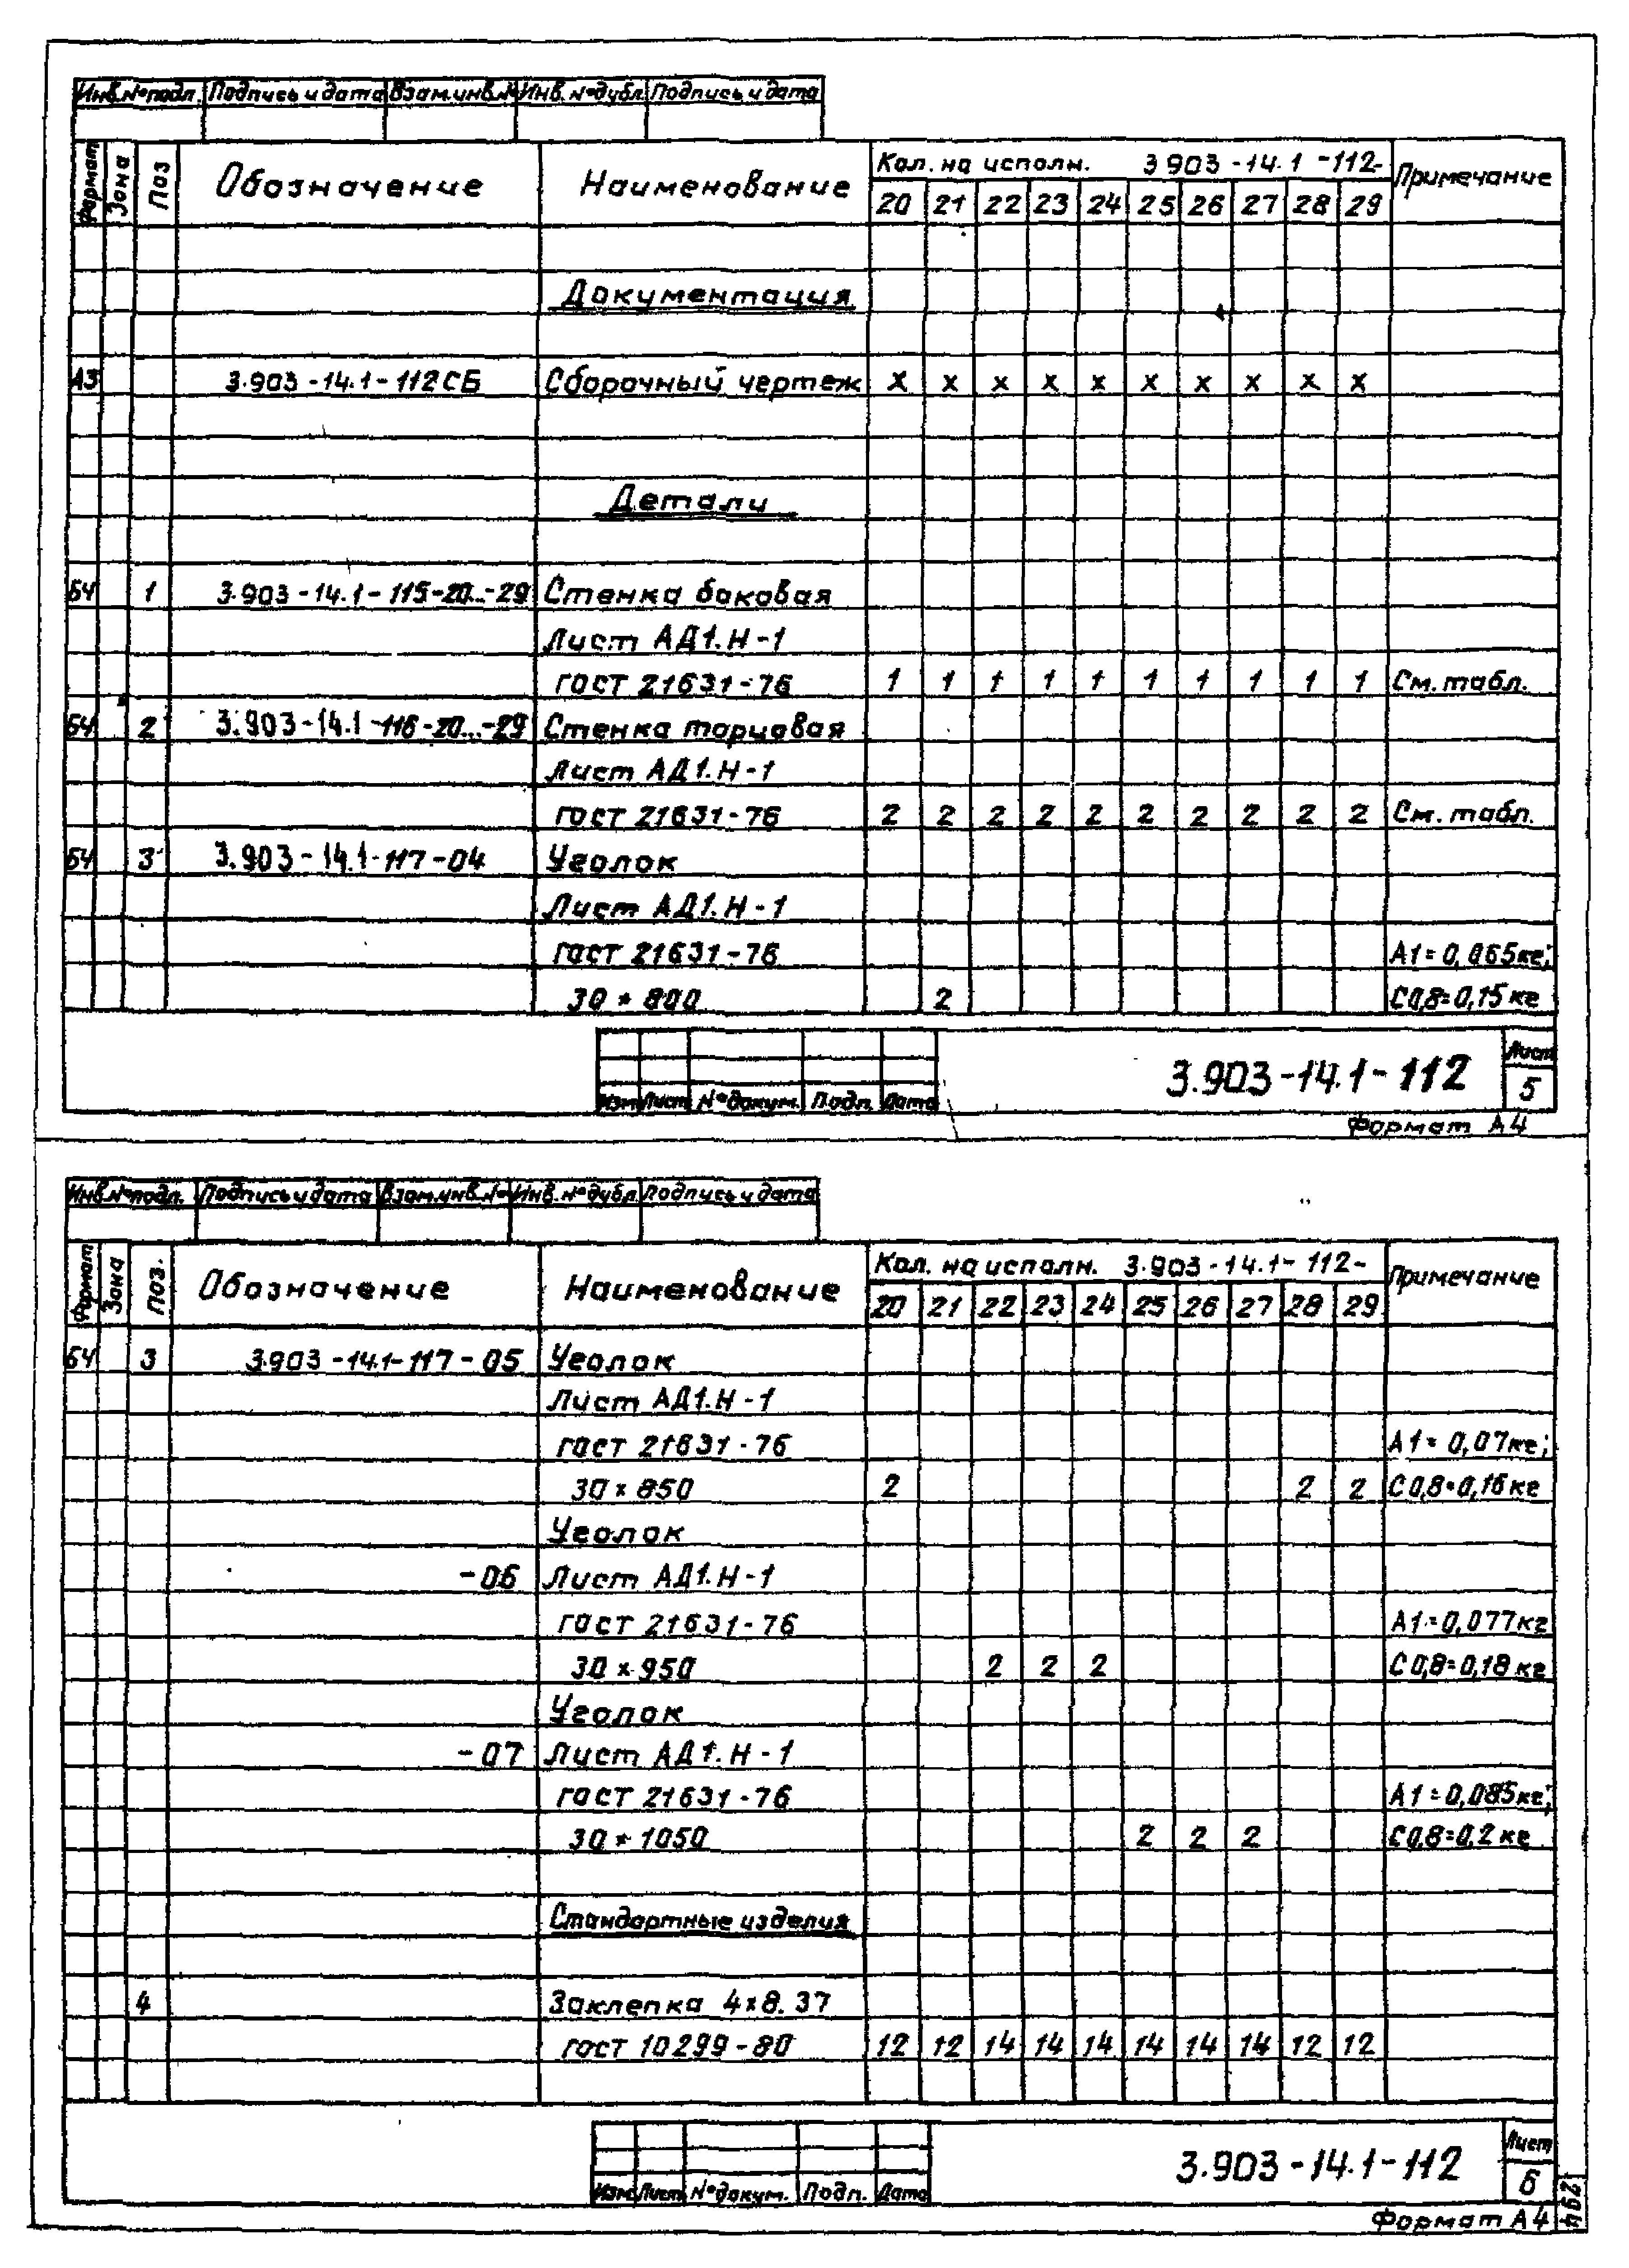 Инв.№подл. Подпись и дата Взам.инв.№ Инв.№дубл. Подпись и дата
Формат Зона Поз Обозначение Наименование Кол. на исполн. 3.903-14.1-112- Примечание
20 21 22 23 24 25 26 27 28 29
Документация
А3 3.903-14.1-112СБ Сборочный чертеж х х х х х х х х х х
Детали
БЧ 1 3.903-14.1-115-20...-29 Стенка боковая
Лист АД1.Н-1
ГОСТ 21631-76 1 1 1 1 1 1 1 1 1 1 См.табл.
БЧ 2 3.903-14.1-116-20...-29 Стенка торцовая
Лист АД1.Н-1
ГОСТ 21631-76 2 2 2 2 2 2 2 2 2 2 См.табл.
БЧ 3 3.903-14.1-117-04 Уголок
Лист АД1.Н-1
ГОСТ 21631-76 А1=0,065кг;
30×800 2 С0,8=0,15кг
3.903-14.1-112 Лист
Изм Лист №докум. Подп. Дата 5
Формат А4
Инв.№подл. Подпись и дата Взам.инв.№ Инв.№дубл. Подпись и дата
Формат Зона Поз. Обозначение Наименование Кол. на исполн. 3.903-14.1-112- Примечание
20 21 22 23 24 25 26 27 28 29
БЧ 3 3.903-14.1-117-05 Уголок
Лист АД1.Н-1
ГОСТ 21631-76 А1=0,07кг;
30×850 2 2 2 С0,8=0,16кг
Уголок
-06 Лист АД1.Н-1
ГОСТ 21631-76 А1=0,077кг
30×950 2 2 2 С0,8=0,18кг
Уголок
-07 Лист АД1.Н-1
ГОСТ 21631-76 А1=0,085кг;
30×1050 2 2 2 С0,8=0,2кг
Стандартные изделия
4 Заклепка 4×8.37
ГОСТ 10299-80 12 12 14 14 14 14 14 14 12 12
3.903-14.1-112 Лист
Изм Лист №докум. Подп. Дата 6
Формат А4